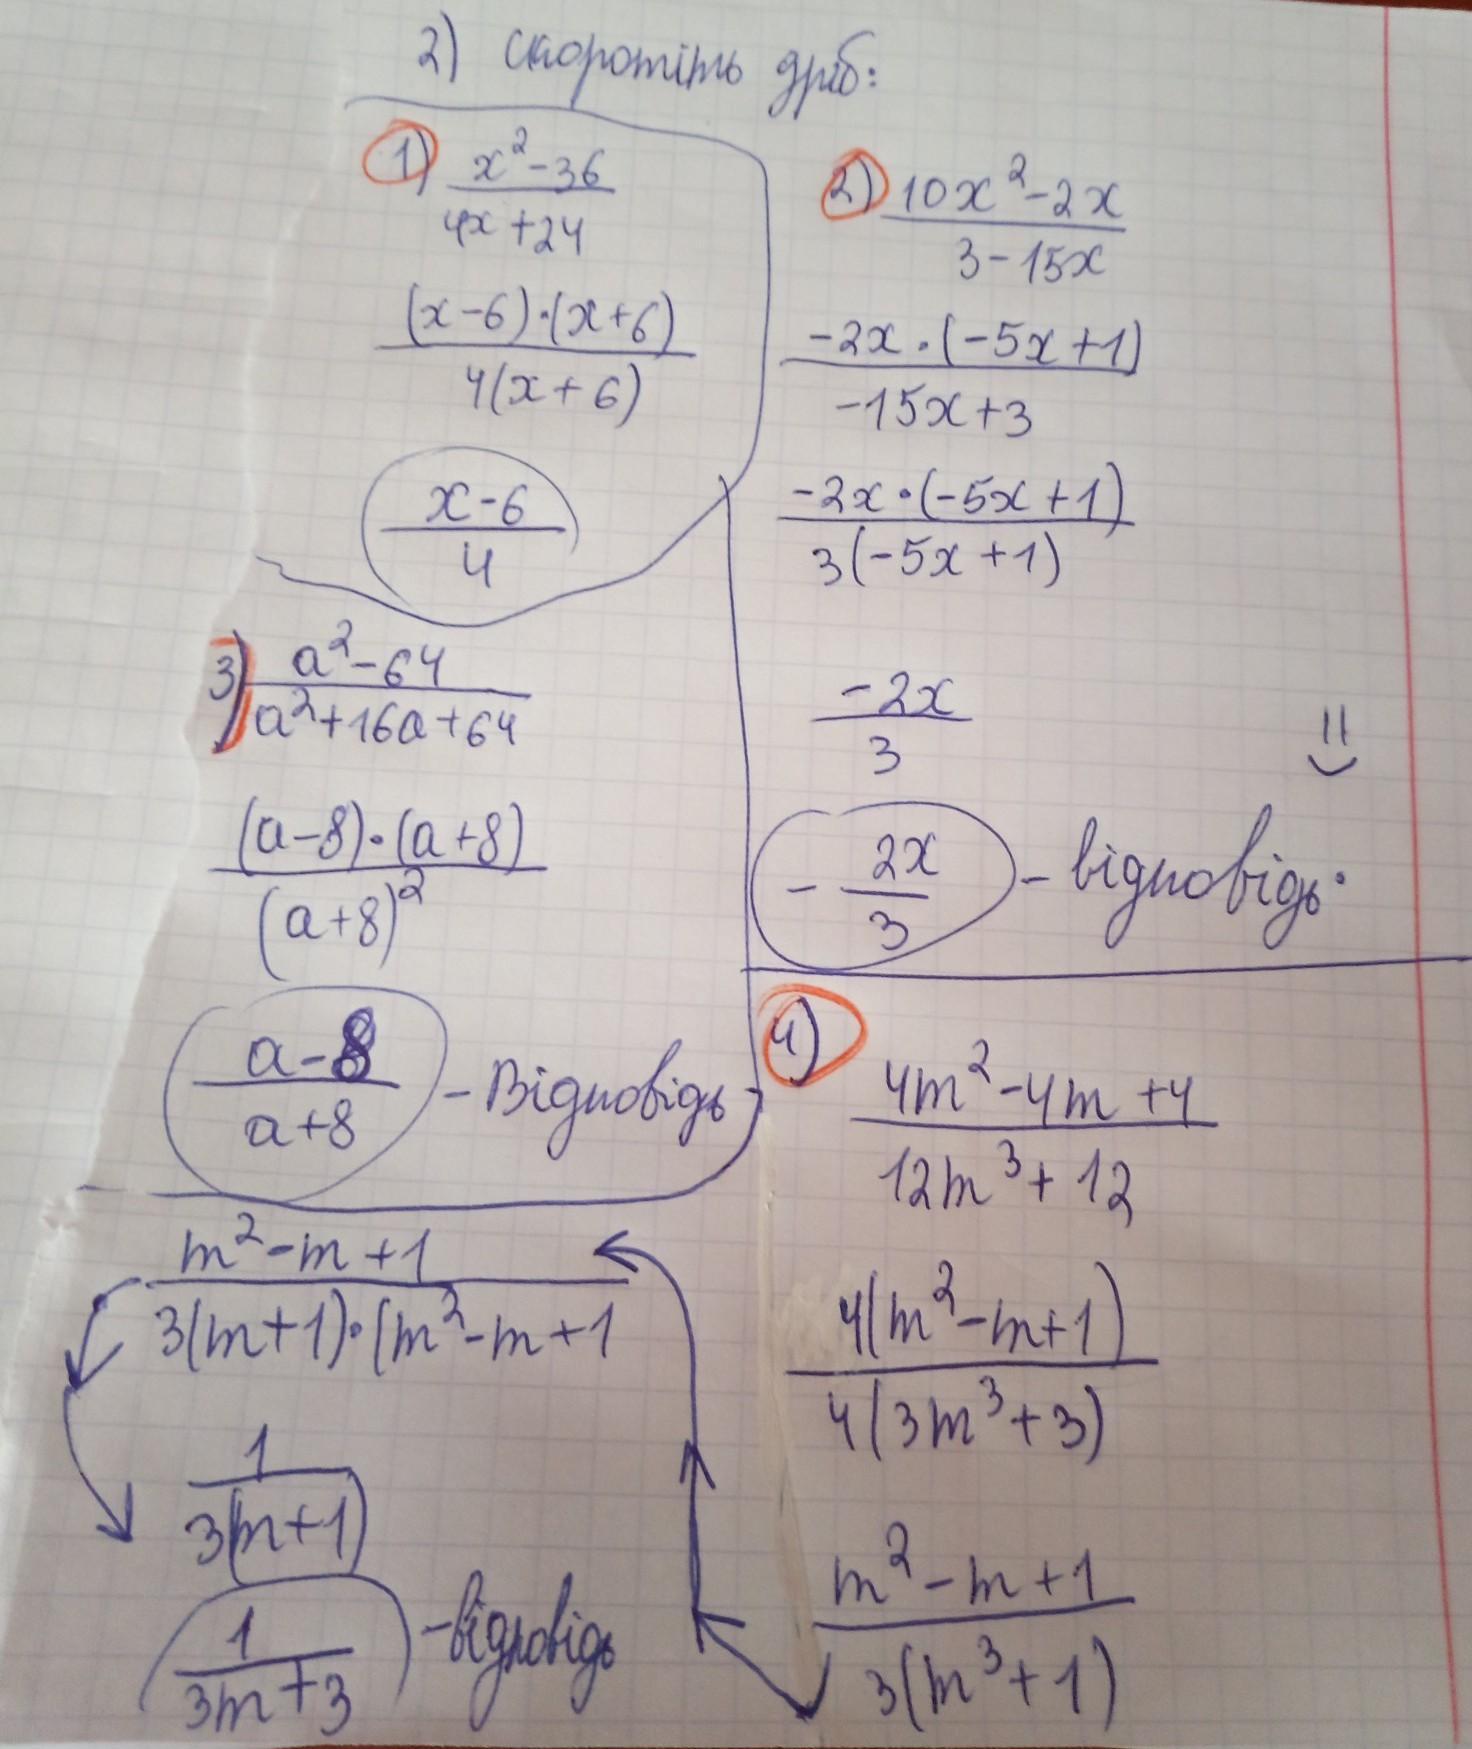 2) скоротіть дріб:
1) x²-36
4x+24
(x-6)·(x+6)
4(x+6)
x-6
4
2) 10x²-2x
3-15x
-2x·(-5x+1)
-15x+3
-2x·(-5x+1)
3(-5x+1)
-2x
3
- 2x
3
- відповідь.
3) a²-64
a²+16a+64
(a-8)·(a+8)
(a+8)²
a-8
a+8
- Відповідь
4)
4m²-4m+4
12m³+12
4(m²-m+1)
4(3m³+3)
m²-m+1
3(m³+1)
m²-m+1
3(m+1)·(m²-m+1
1
3(m+1)
1
3m+3
-відповідь